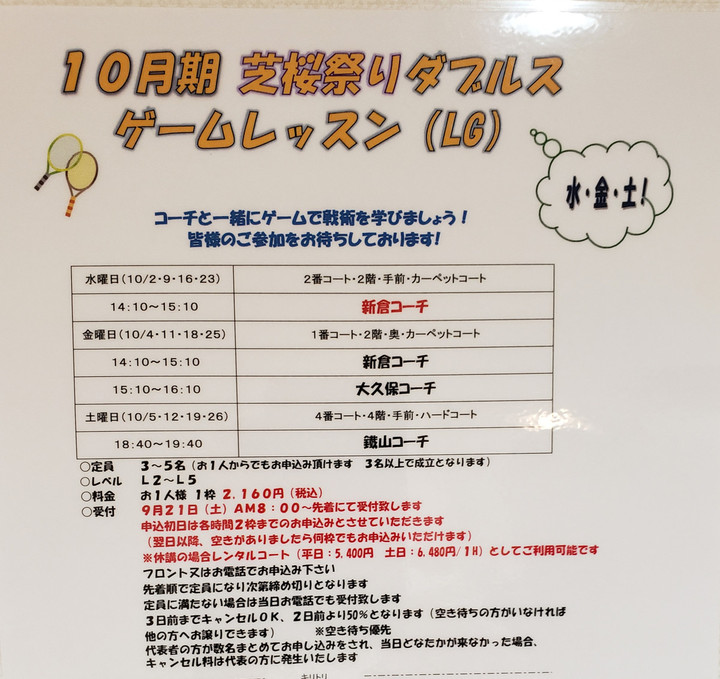 10月期 芝桜祭りダブルス
ゲームレッスン（LG）
水・金・土！
コーチと一緒にゲームで戦術を学びましょう！
皆様のご参加をお待ちしております！
水曜日（10/2・9・16・23） 2番コート・2階・手前・カーペットコート
14：10～15：10 新倉コーチ
金曜日（10/4・11・18・25） 1番コート・2階・奥・カーペットコート
14：10～15：10 新倉コーチ
15：10～16：10 大久保コーチ
土曜日（10/5・12・19・26） 4番コート・4階・手前・ハードコート
18：40～19：40 鐵山コーチ
○定員 3～5名（お1人からでもお申込み頂けます 3名以上で成立となります）
○レベル L2～L5
○料金 お1人様 1枠 2,160円（税込）
○受付 9月21日（土）AM8：00～先着にて受付致します
申込初日は各時間2枠までのお申込みとさせていただきます
（翌日以降、空きがありましたら何枠でもお申込みいただけます）
※休講の場合レンタルコート（平日：5,400円 土日：6,480円/1H）としてご利用可能です
フロント又はお電話でお申込み下さい
先着順で定員になり次第締め切りとなります
定員に満たない場合は当日お電話でも受付致します
3日前までキャンセルOK、2日前より50％となります（空き待ちの方がいなければ
他の方へお譲りできます） ※空き待ち優先
代表者の方が数名まとめてお申し込みをされ、当日どなたかが来なかった場合、
キャンセル料は代表の方に発生いたします
キリトリ